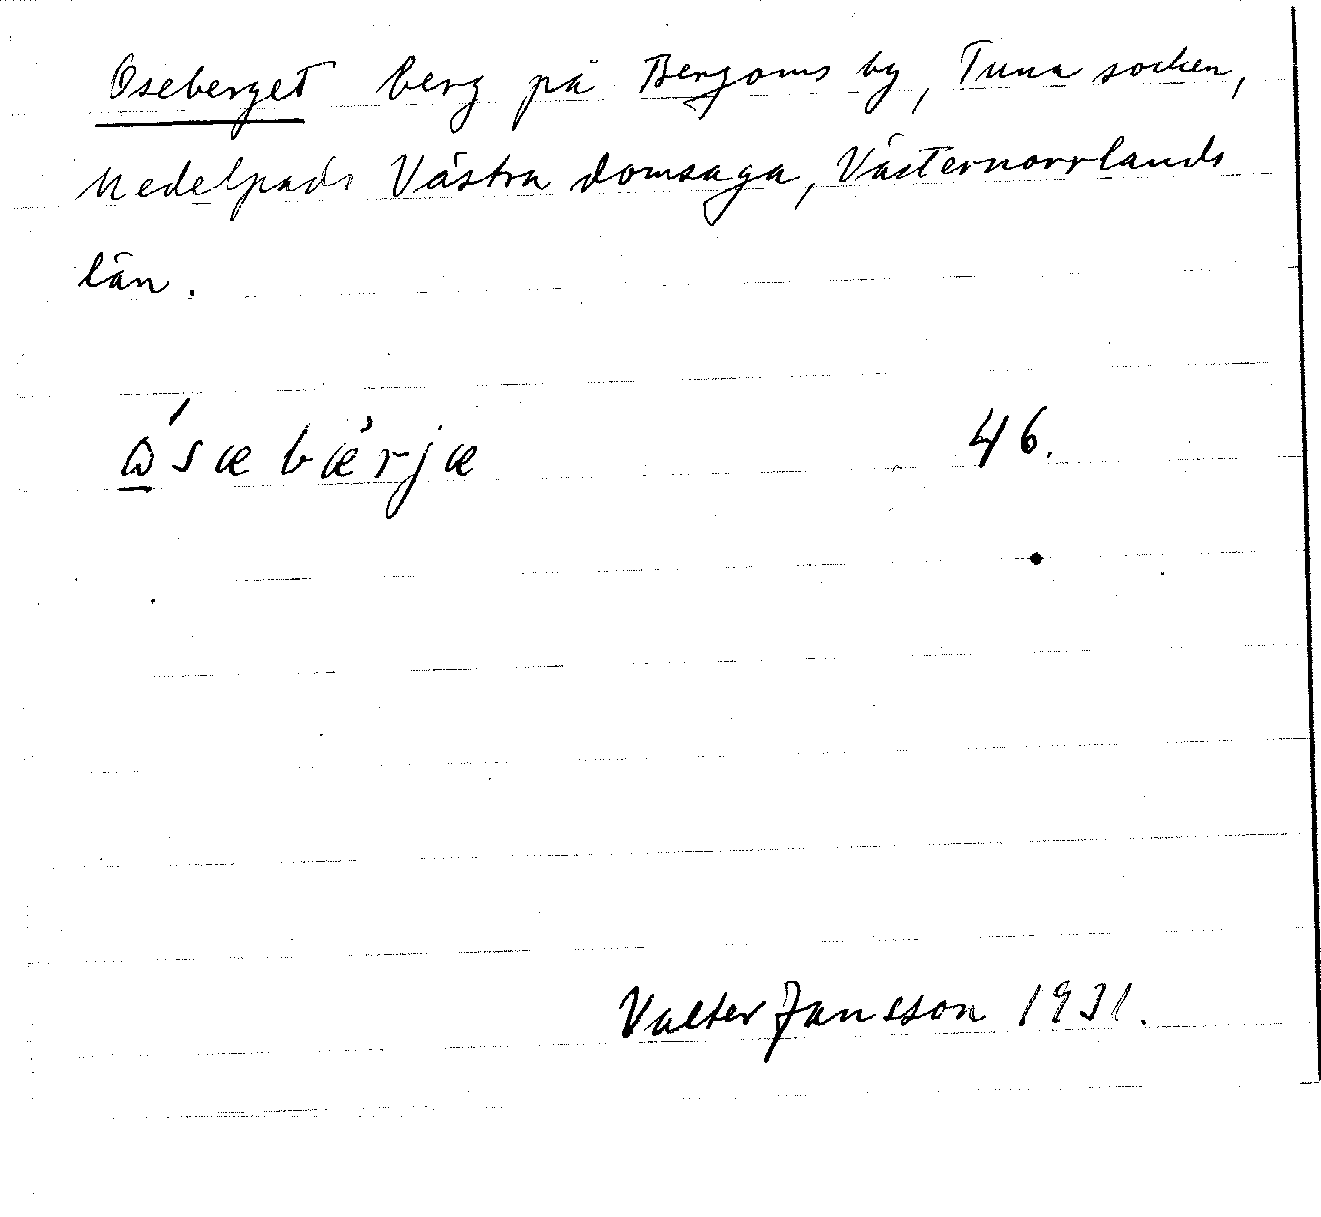 Oseberget berg på Bergoms by, Tuna socken,
Medelpads Västra domsaga, Västernorrlands
län.
ɷ́sæbæ̀rjæ 46.
Valter Jansson 1931.